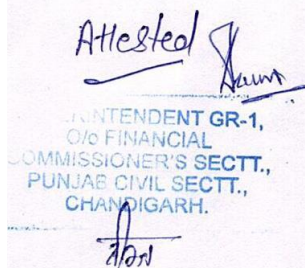 Attested
INTENDENT GR-1,
O/o FINANCIAL
COMMISSIONER'S SECTT.,
PUNJAB CIVIL SECTT.,
CHANDIGARH.